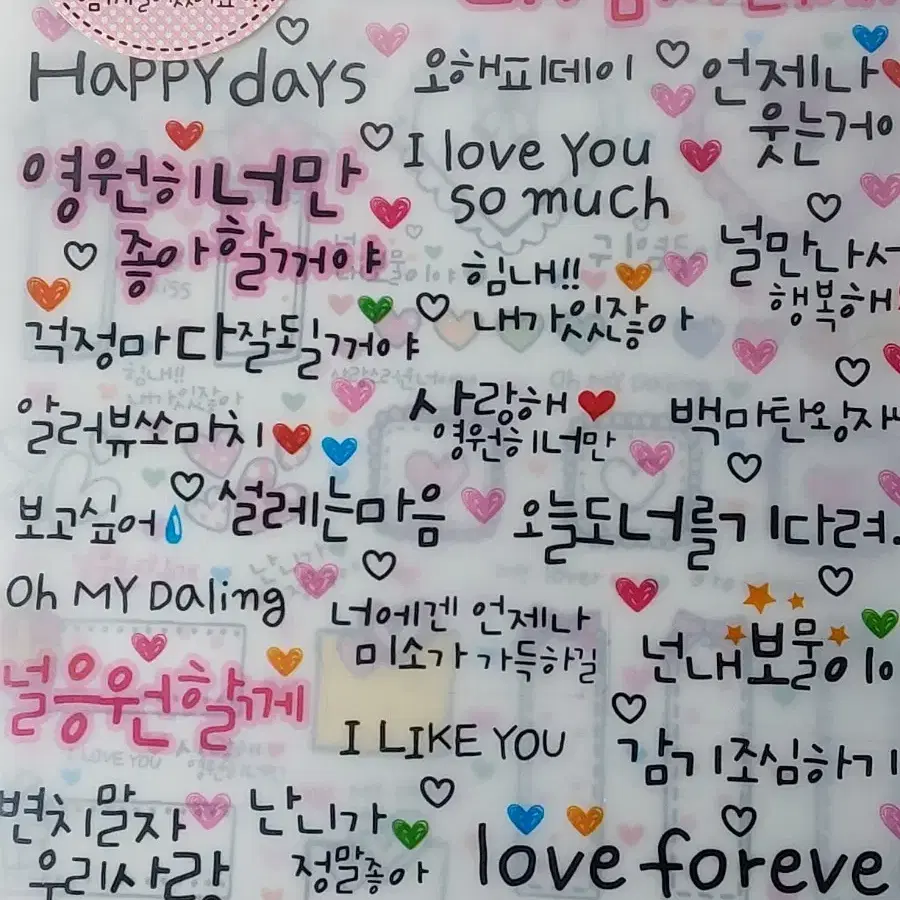 HaPPY days
오해피데이
언제나
웃는거야
영원히너만
좋아할거야
I love You
so much
힘내!!
내가있잖아
널만나서
행복해!
걱정마다잘될거야
알러뷰쏘마치
사랑해
영원히너만
백마탄왕자
보고싶어
설레는마음
오늘도너를기다려.
Oh MY Daling
너에겐 언제나
미소가 가득하길
넌내보물이야
널응원할게
I LIKE YOU
감기조심하기
변치말자
우리사랑
난니가
정말좋아
love foreve